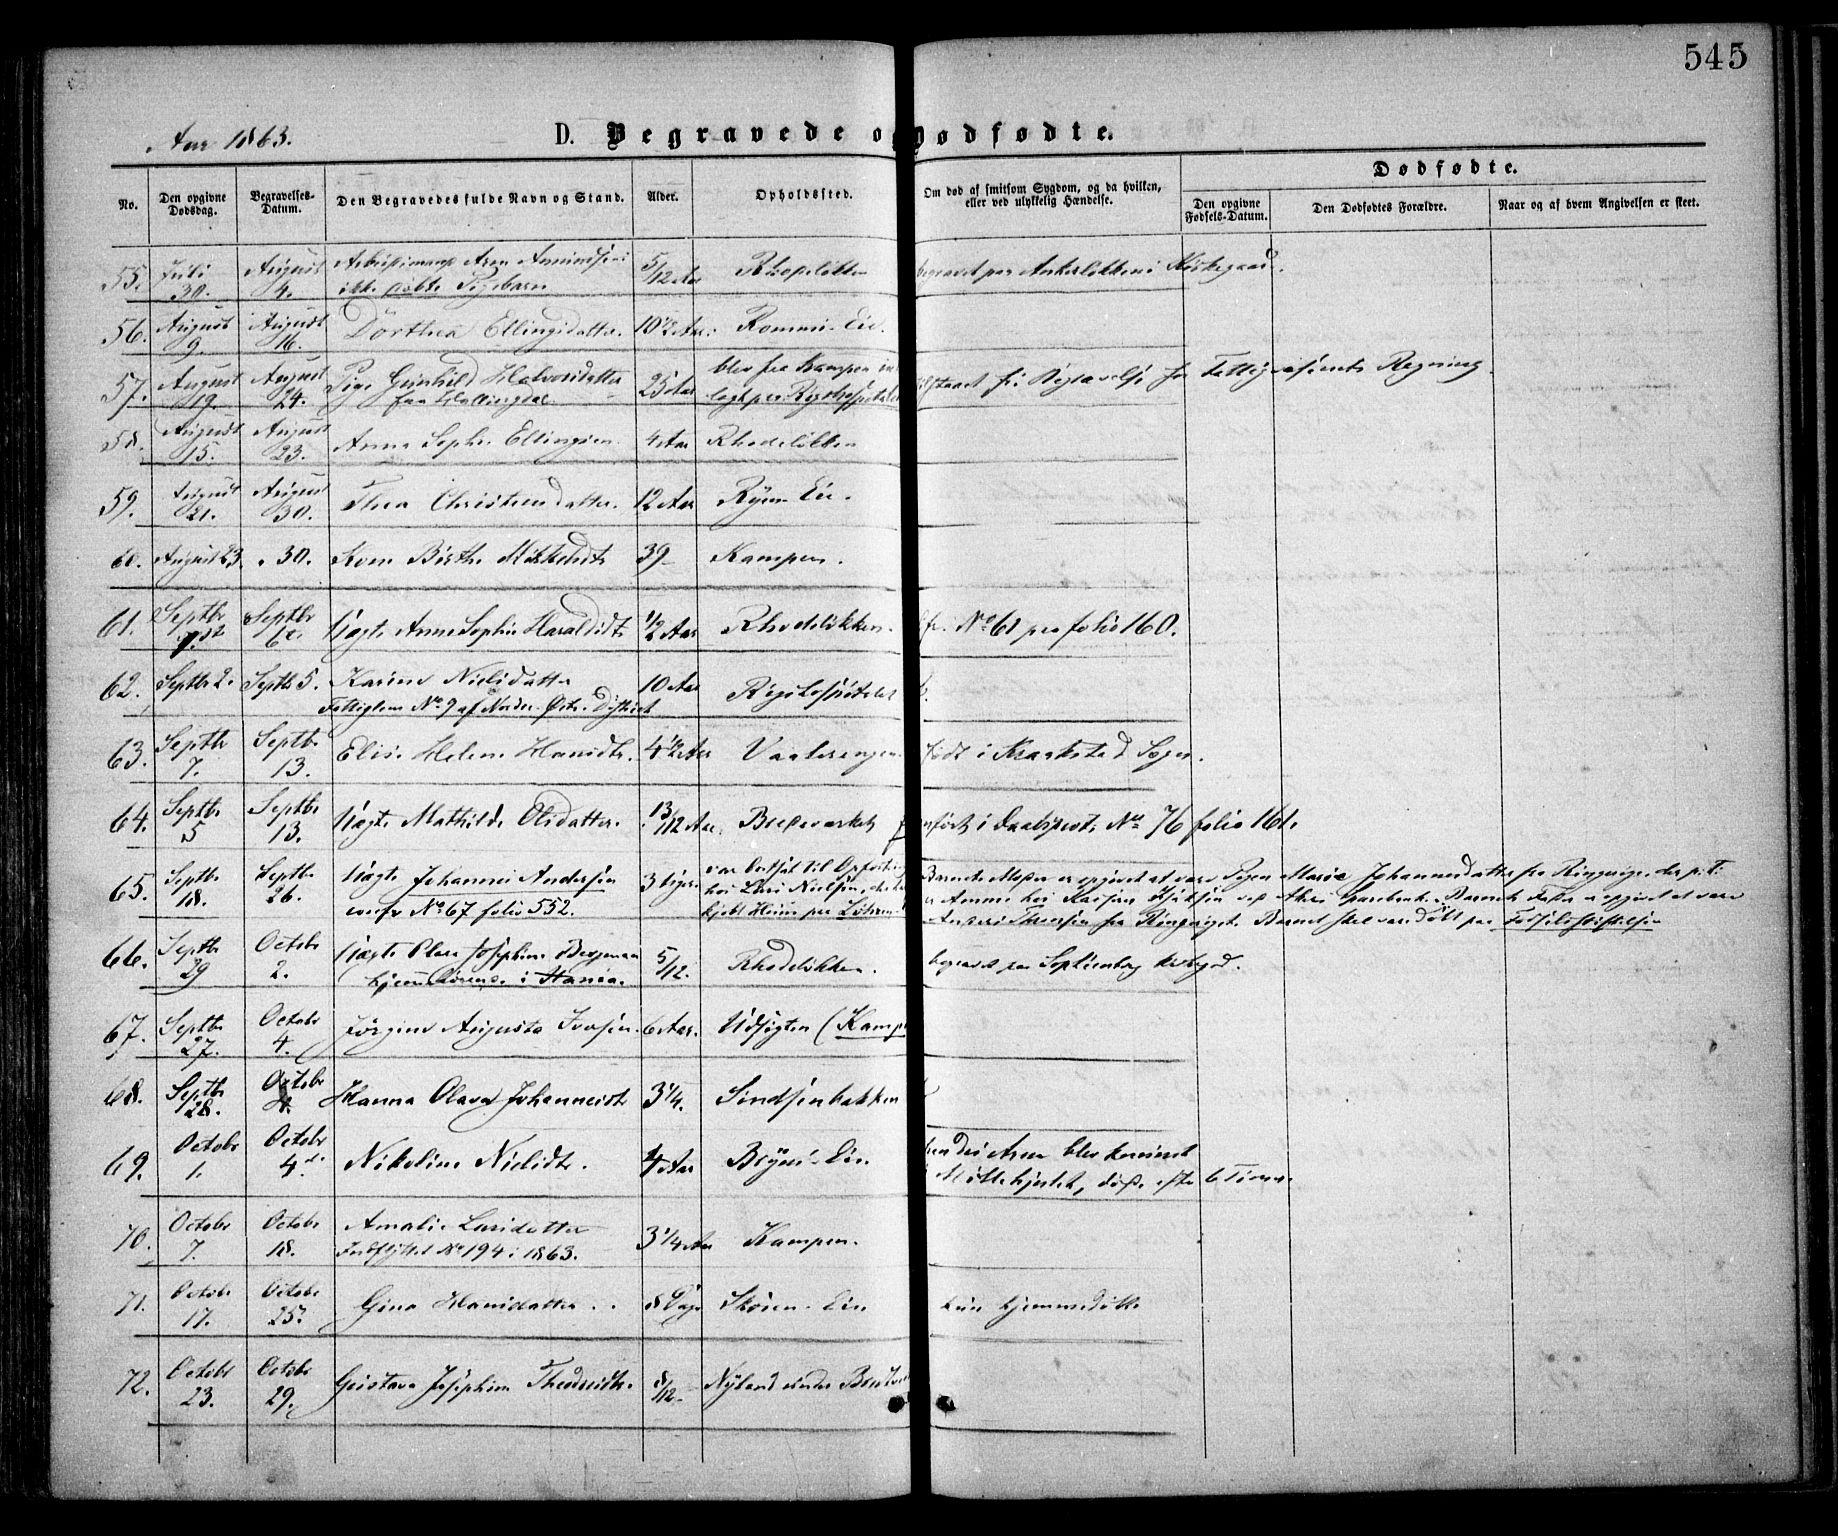 545
Aar 1863.
D. Begravede og Dødfødte.
No.
Den opgivne Dødsdag.
Begravelses-Datum.
Den Begravedes fulde Navn og Stand.
Alder.
Opholdssted.
Om død af smitsom Sygdom, og da hvilken, eller ved ulykkelig Hændelse.
Dødfødte.
Den opgivne Fødsels-Datum.
Den Dødfødtes Forældre.
Naar og af hvem Angivelsen er skeet.
55. Juli 30. August 4. Aren
ikke døbte Pigebarn 5/12 Aar Rhodeløkken begravet paa Ankerløkkens Kirkegaard.
56. August 9. August 16. Dorthea Ellingsdatter. 10 1/2 Aar. Eie.
57. August 19. August 24. Pige Gunhild Halvorsdatter
fra Hallingdal. 25 Aar blev fra Kampen
lagt paa Rigshospitalet tilstaaet fri Begravelse for Fattigvæsenets Regning.
58. August 15. August 23. Anna Sophie Ellingsen. 4 Aar Rhodeløkken
59. August 21. August 30. Thea Christensdatter. 12 Aar Ryen Eie.
60. August 23. " 30. Kone Birthe Mikkelsdtr 39 Kampen.
61. Septbr 1. Septbr 6. Uægte Anne Sophie Haraldsdtr 1/2 Aar Rhodeløkken. cfr. No 61 paa folio 160.
62. Septbr 2. Septbr 5. Karine Nielsdatter
Fattiglem No 9 af Nordre Østre District 10 Aar Rigshospitalet
63. Septbr 7. Septbr 13. Elise Helene Hansdtr. 4 1/2 Aar Vaalerengen født i Kraakstad Sogn.
64. Septbr 5 Septbr 13. Uægte Mathilde Olsdatter. 13/12 Aar. indført i Daabsprot. No 76 folio 161.
65. Septbr 18. Septbr 26. Uægte Johannes Andersen
confr No 67 folio 552. 3 Uger var bortsat til Opfostring
hos Lars Nielsen, Barnets Moder er opgivet at være Pigen Maria Johannesdatter fra Ringerige, der p.t.
er Amme hos Barnets Fader er opgivet at være
Anders fra Ringerige. Barnet skal være døbt paa Fødselsstiftelsen
66. Septbr 29 Octobr 2. Uægte Olava Josephine Bergman
5/12. Rhodeløkken. begravet paa Sophienberg Kirkegd.
67. Septbr 27. Octobr 4. Jørgine Augusta Iversen. 6 Aar. Udsigten (Kamp
68. Septbr 28. Octobr 4. Hanna Olava Johannesdtr 3 1/4.
69. Octobr 1. Octobr 4. Nikoline Nielsdtr. 4 Aar Bryns-Eie hendes Arm blev
i Møllehjulet, døde efter 6 Timer.
70. Octobr 7. Octobr 18. Amalie Larsdatter
Indflyttet No 194 i 1863. 3 1/4 Aar Kampen.
71. Octobr 17. Octobr 25. Gina Hansdatter. 8 Dage Skøien-Eie kun hjemmedøbt
72. Octobr 23. Octobr 29. Gustava Josephine Theodorsdtr. 8/12 Nyland under